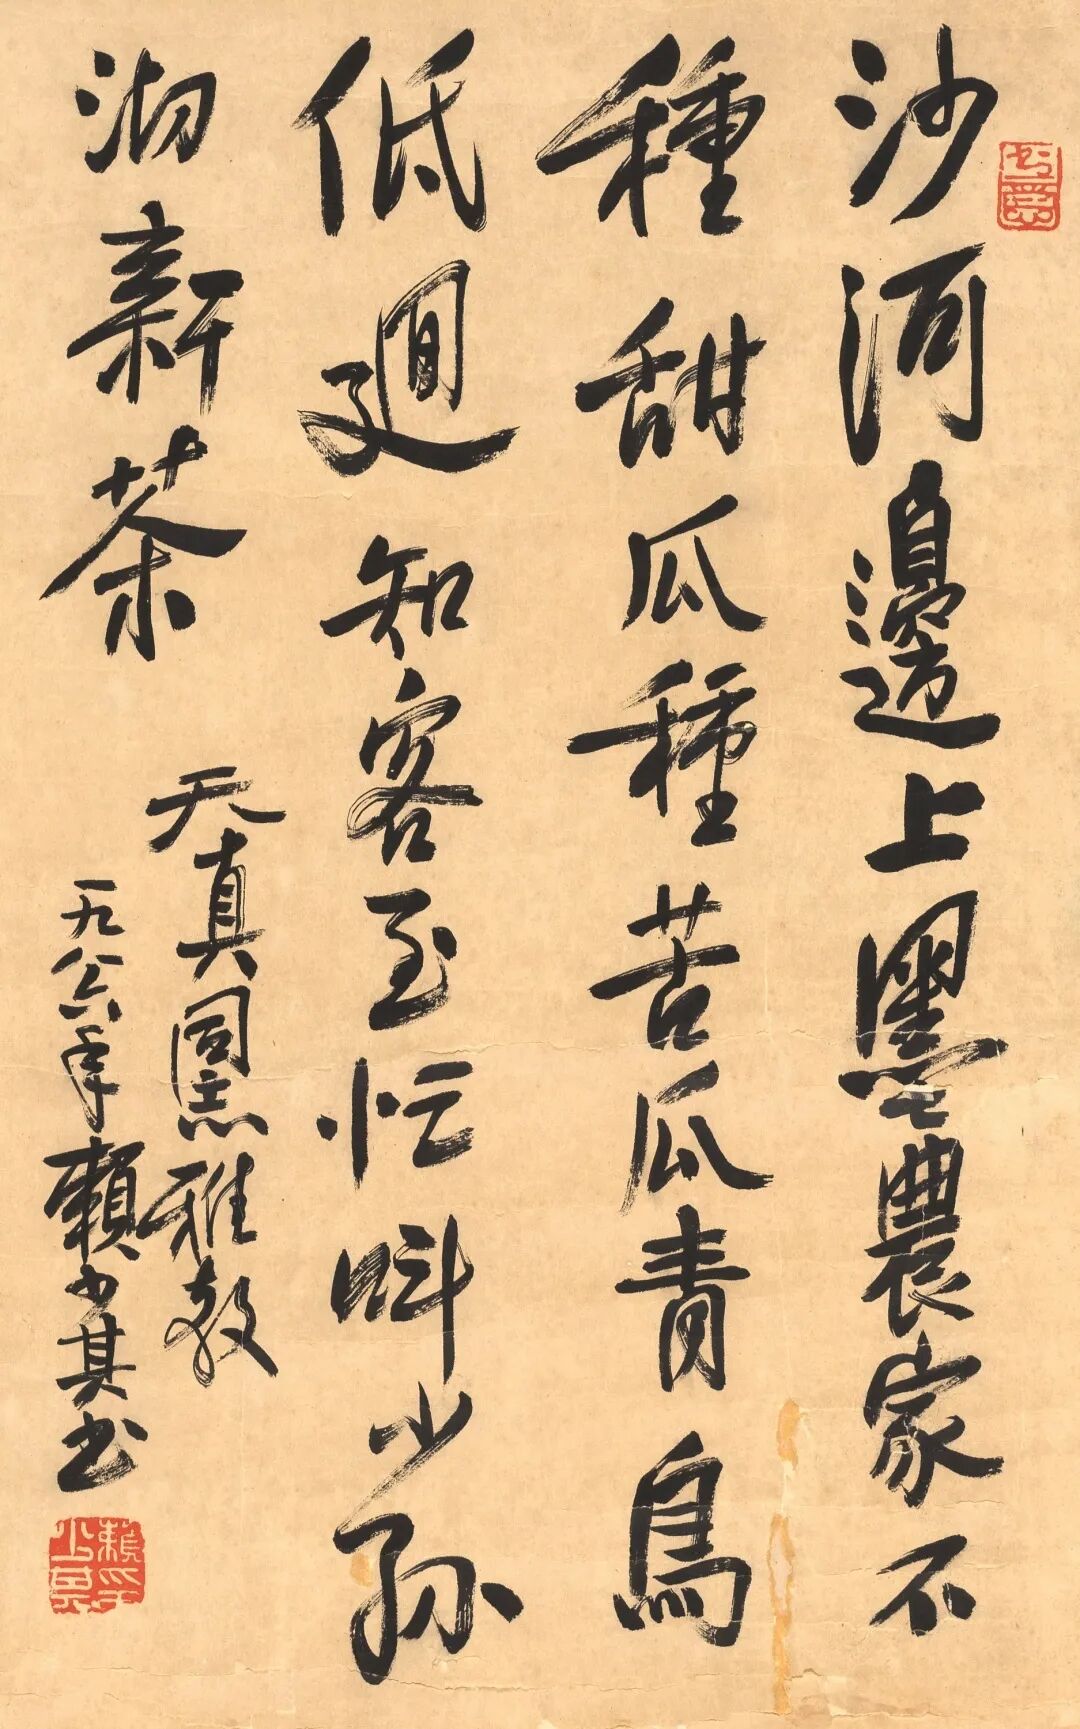 沙河邊上墨農家不
種甜瓜種苦瓜青鳥
低迴知客至忙呌小孫
沏新茶
天真同志雅教
一九八六年賴少其书